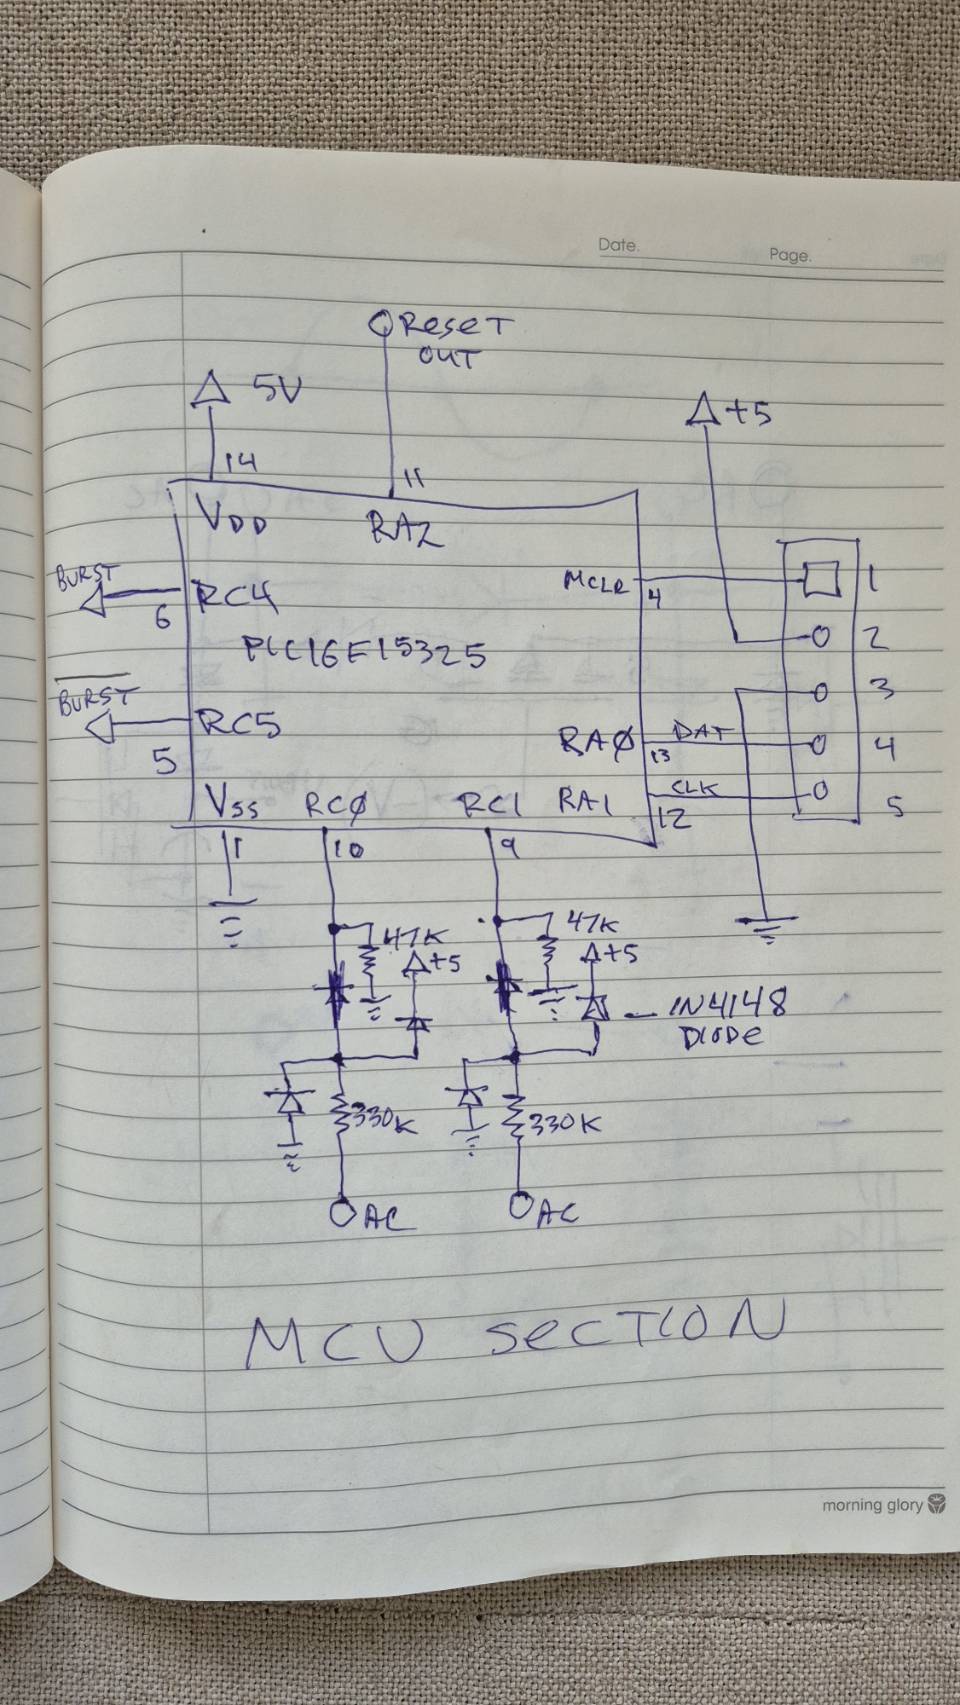 Date.
Page.
Reset
OUT
5V
+5
14
11
VDD
RA2
BURST
6
RC4
MCLR
4
1
PIC16F15325
2
BURST
5
RC5
3
RAØ
DAT
13
4
VSS
RCØ
RC1
RA1
CLK
12
5
1
10
9
47K
+5
47K
+5
1N4148
DIODE
330K
330K
AC
AC
MCU SECTION
morning glory